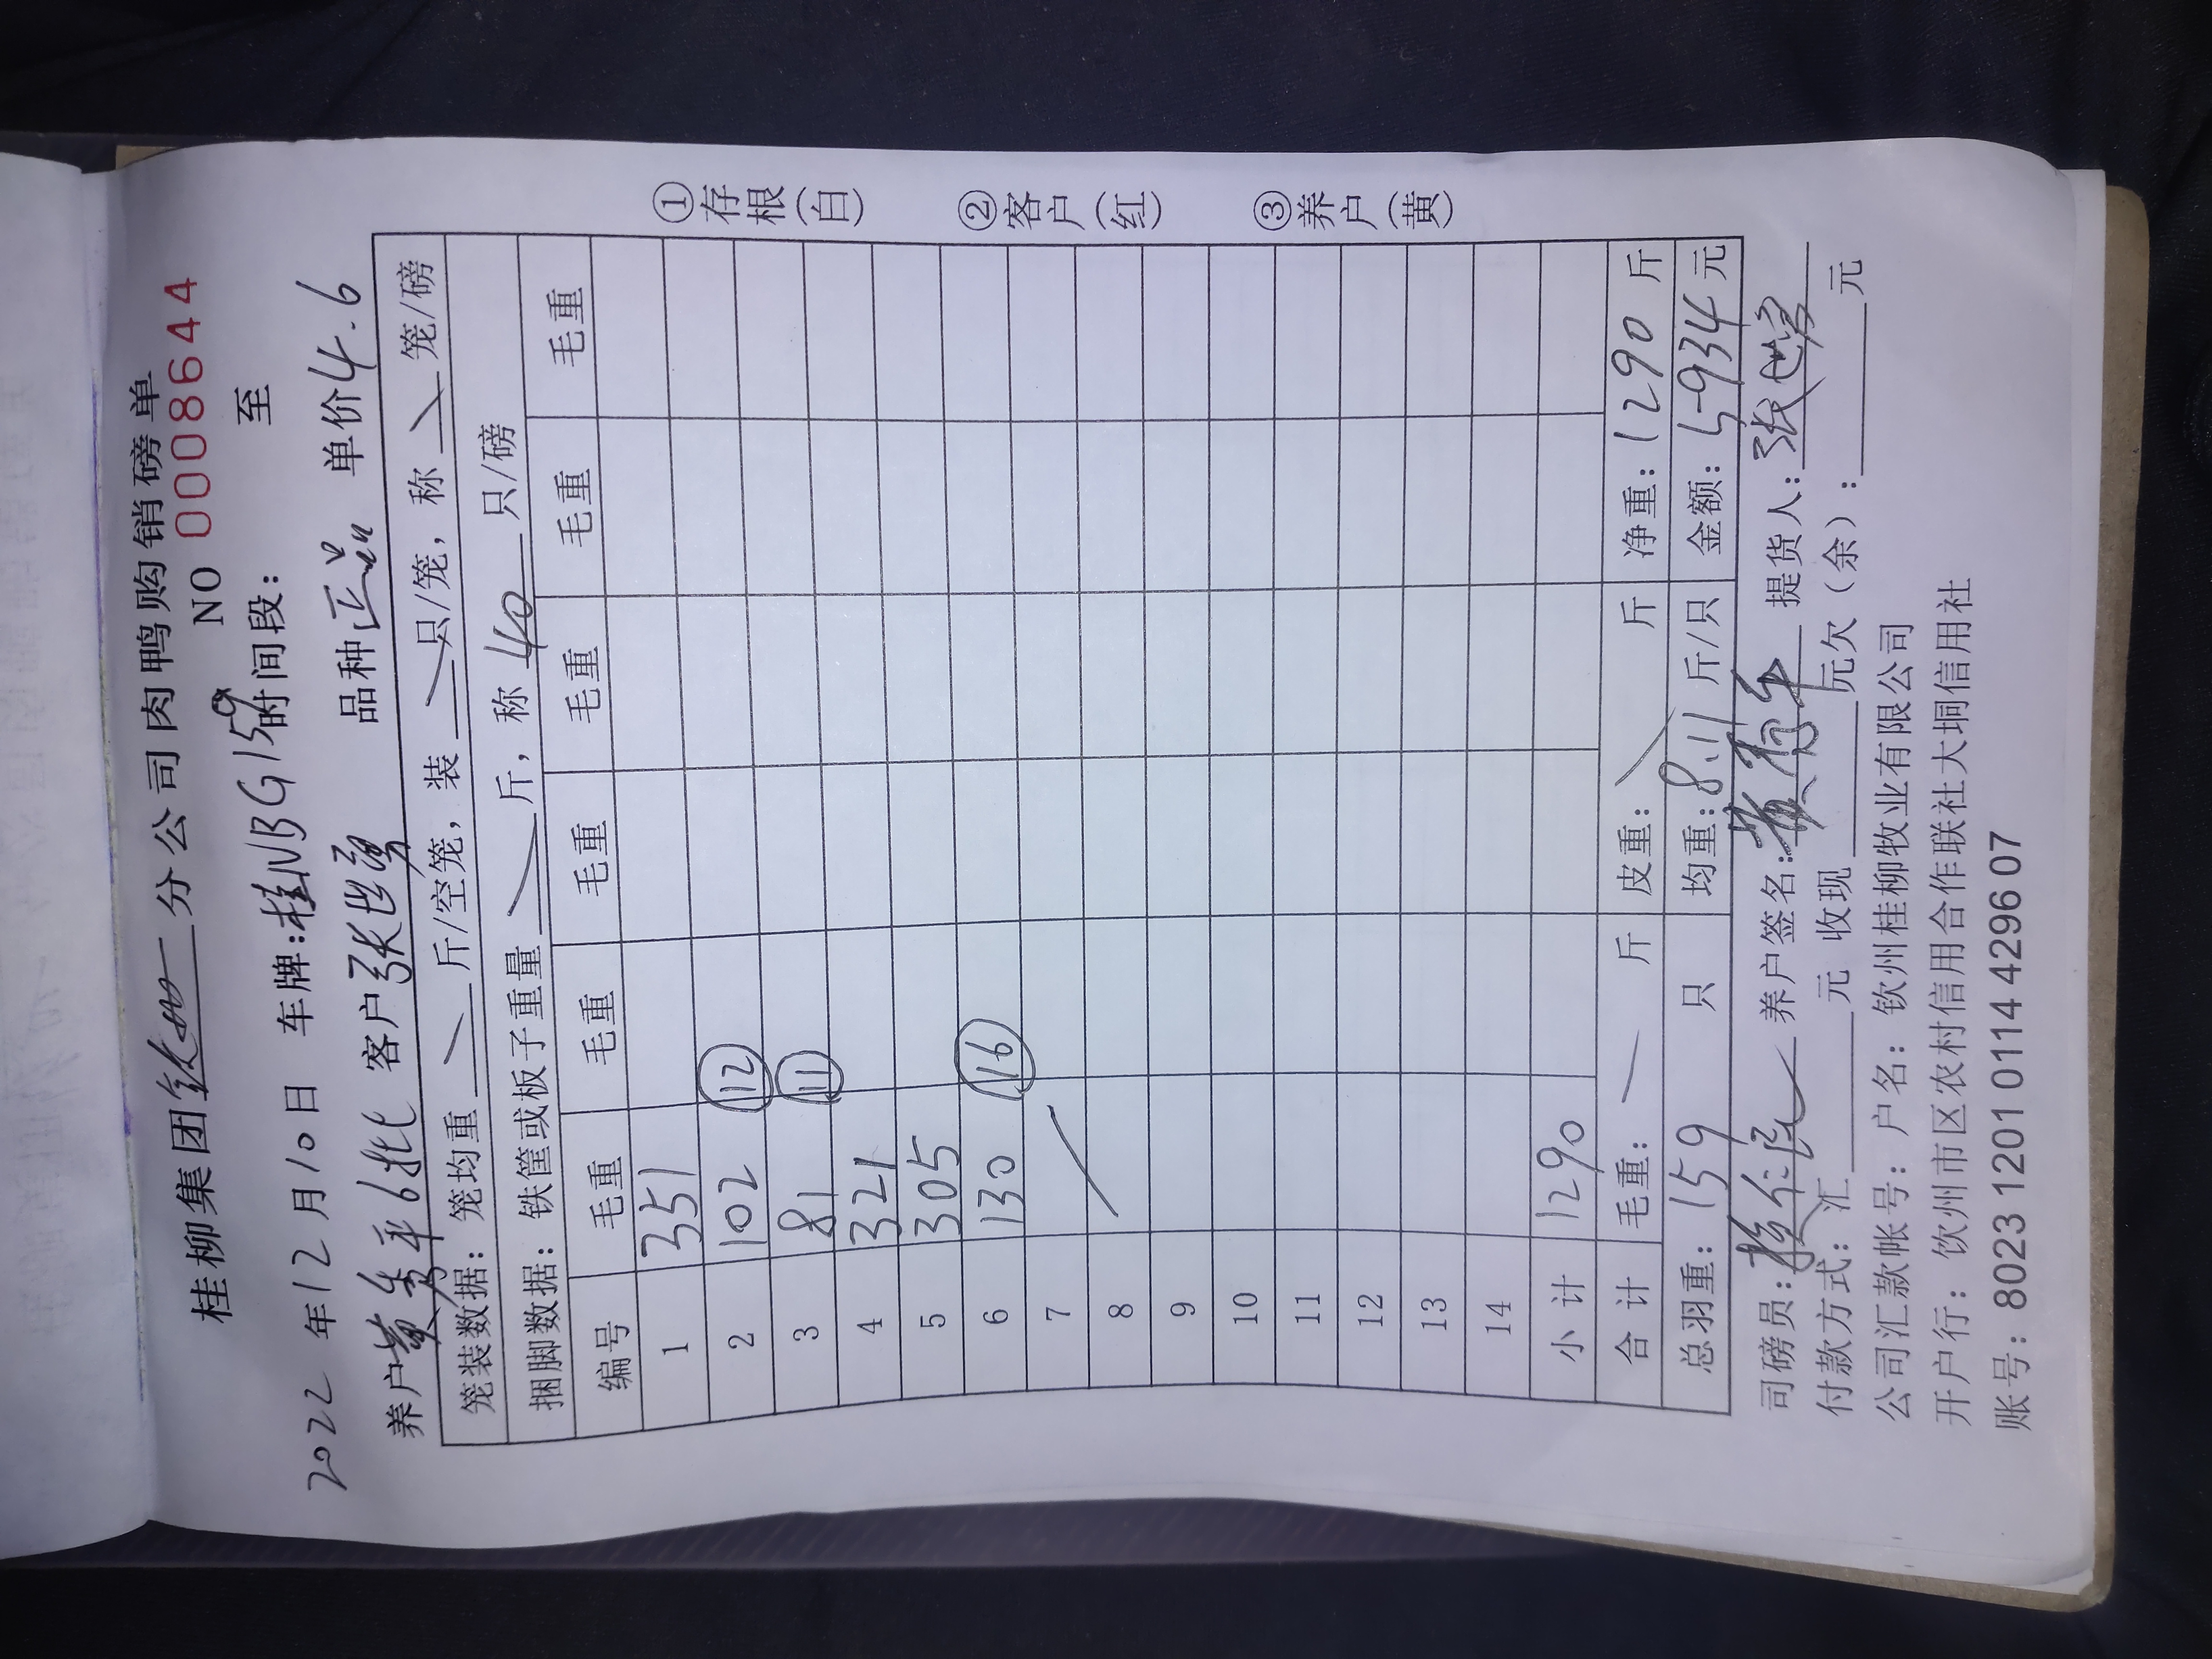 桂柳集团 分公司肉鸭购销磅单
NO 0008644
2022年12月10日 车牌:桂NBG159 时间段: 至
养户黄秀平6批 客户张世勇 品种正品 单价4.6
笼装数据:笼均重 斤/空笼,装 只/笼,称 笼/磅
捆脚数据:铁筐或板子重量 斤,称40只/磅
编号 毛重 毛重 毛重 毛重 毛重 毛重
1 351
2 102 ⑫
3 81 ⑪
4 321
5 305
6 130 ⑯
7
8
9
10
11
12
13
14
小计 1290
合计 毛重: 斤 皮重: 斤 净重:1290斤
总羽重:159 只 均重:8.11斤/只 金额:5934元
司磅员: 养户签名: 提货人:张世勇
付款方式:汇 元 收现 元欠(余): 元
公司汇款帐号:户名:钦州桂柳牧业有限公司
开户行:饮州市区农村信用合作联社大垌信用社
账号:8023 1201 0114 4296 07
①存根(白)
②客户(红)
③养户(黄)